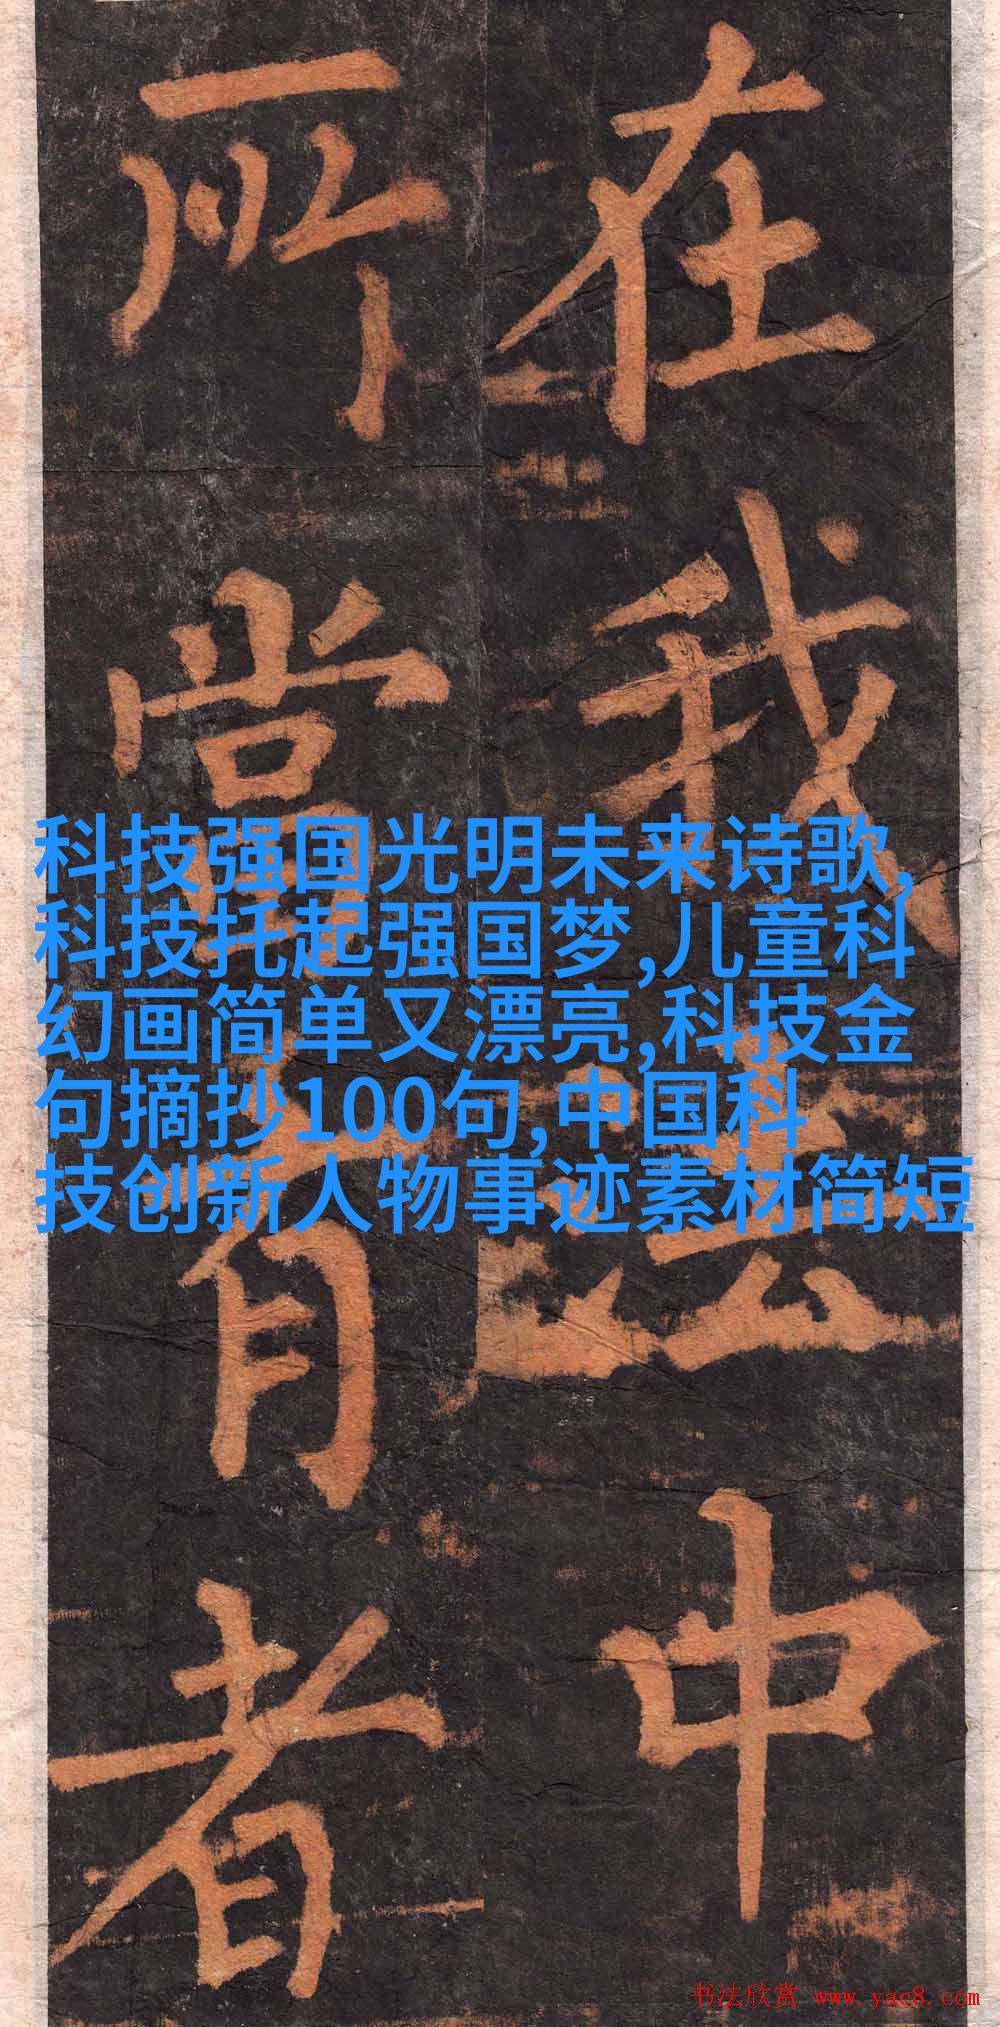 在我法中
所當有者
科技强国光明未来诗歌,
科技托起强国梦,儿童科
幻画简单又漂亮,科技金
句摘抄100句,中国科
技创新人物事迹素材简短
书法欣赏 www.yac8.com